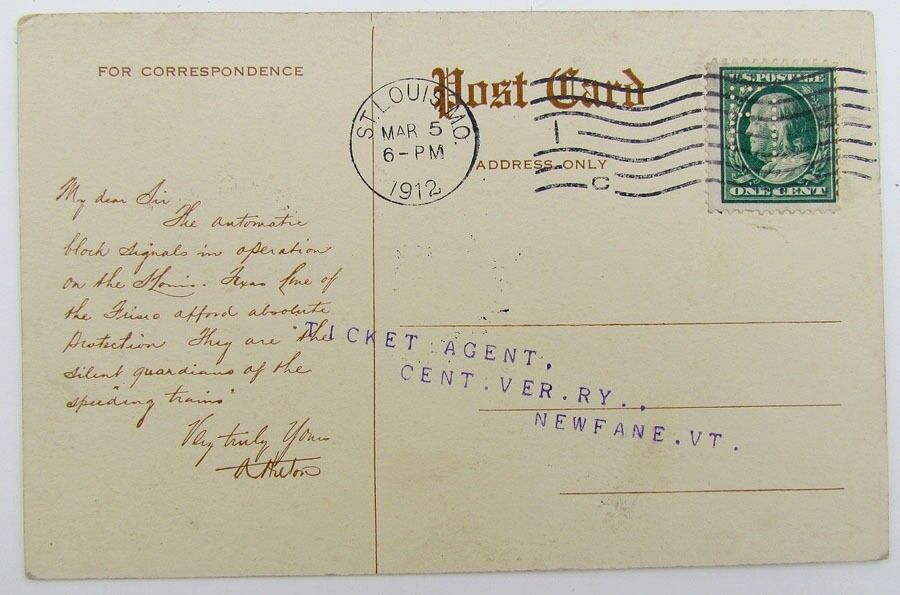 FOR CORRESPONDENCE
Post Card
ADDRESS ONLY
ST. LOUIS, MO.
MAR 5
6-PM
1912
U.S. POSTAGE
ONE CENT
My dear Sir
The automatic
block signals in operation
on the St Louis. Texas line of
the Frisco afford absolute
protection They are "the
silent guardians of the
speeding trains"
Very truly Yours
TICKET AGENT,
CENT.VER.RY.,
NEWFANE.VT.